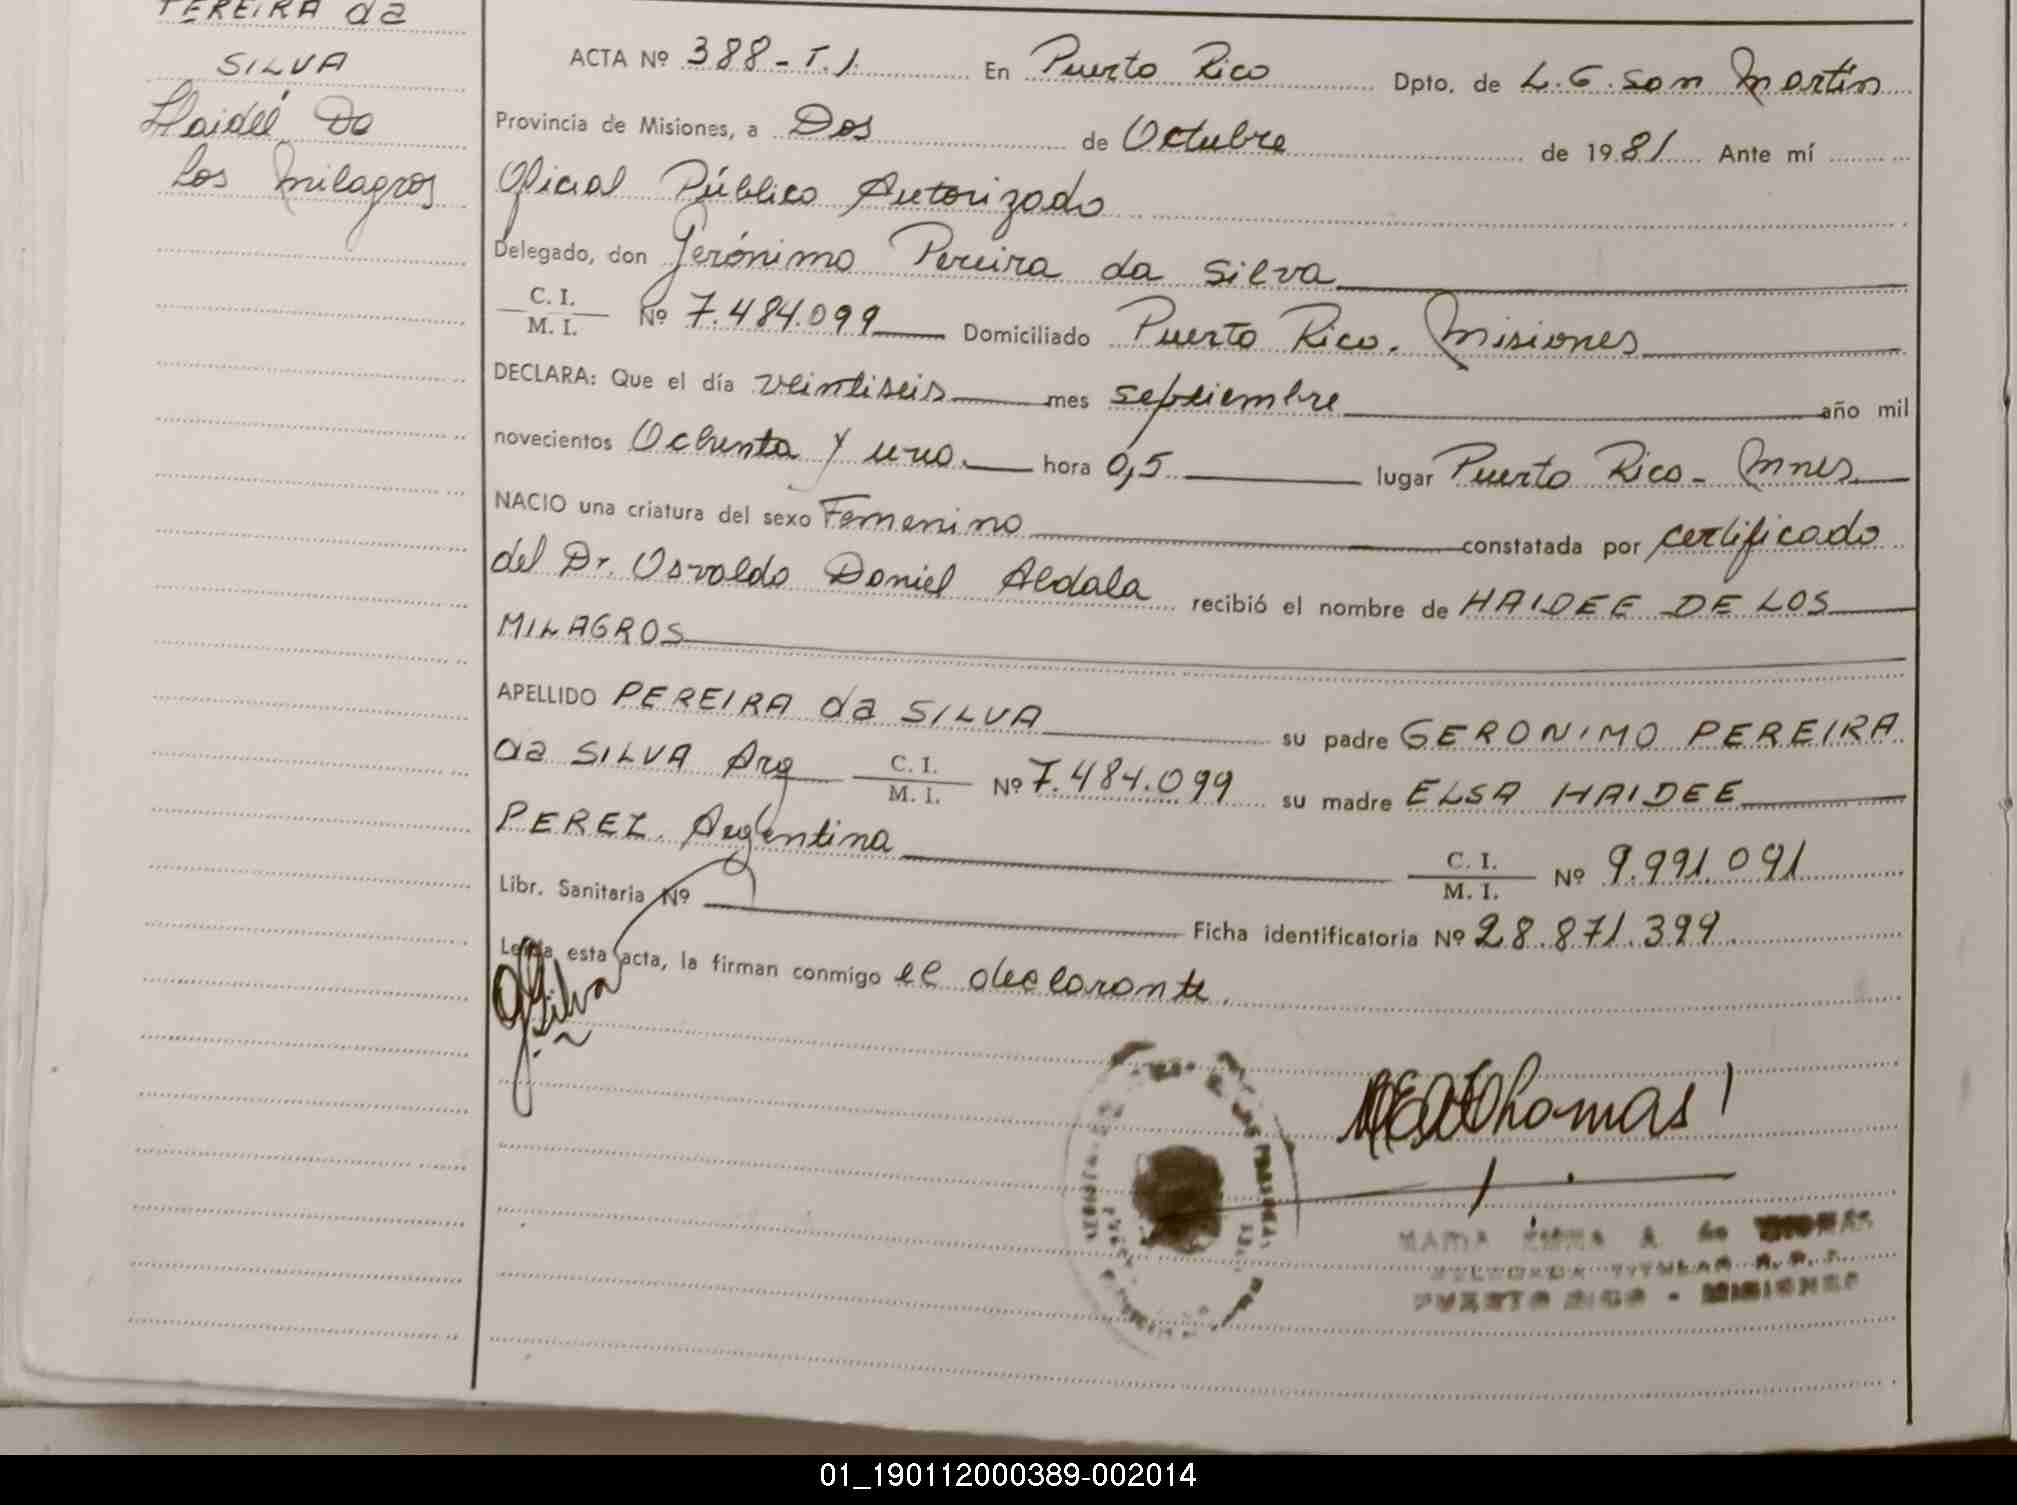 PEREIRA da
SILVA
Haideé De
los Milagros
ACTA Nº 388-T.I. En Puerto Rico Dpto. de L.G. San Martín
Provincia de Misiones, a Dos de Octubre de 1981 Ante mí
Oficial Público Autorizado
Delegado, don Gerónimo Pereira da Silva
C. I.
M. I. Nº 7.484.099 Domiciliado Puerto Rico. Misiones
DECLARA: Que el día veintiseis mes septiembre año mil
novecientos Ochenta y uno. hora 0,5 lugar Puerto Rico - Mnes.
NACIO una criatura del sexo Femenino constatada por certificado
del Dr. Osvaldo Daniel Aldala recibió el nombre de HAIDEE DE LOS
MILAGROS
APELLIDO PEREIRA da SILVA su padre GERONIMO PEREIRA
da SILVA Arg C. I.
M. I. Nº 7.484.099 su madre ELSA HAIDEE
PEREZ. Argentina C. I.
M. I. Nº 9.991.091
Libr. Sanitaria Nº Ficha identificatoria Nº 28.871.399
Leída esta acta, la firman conmigo el declarante.
GSilva
Thomas
MARIA EMMA A. de THOMAS
DELEGADA TITULAR R.P.P.
PUERTO RICO - MISIONES
01_190112000389-002014